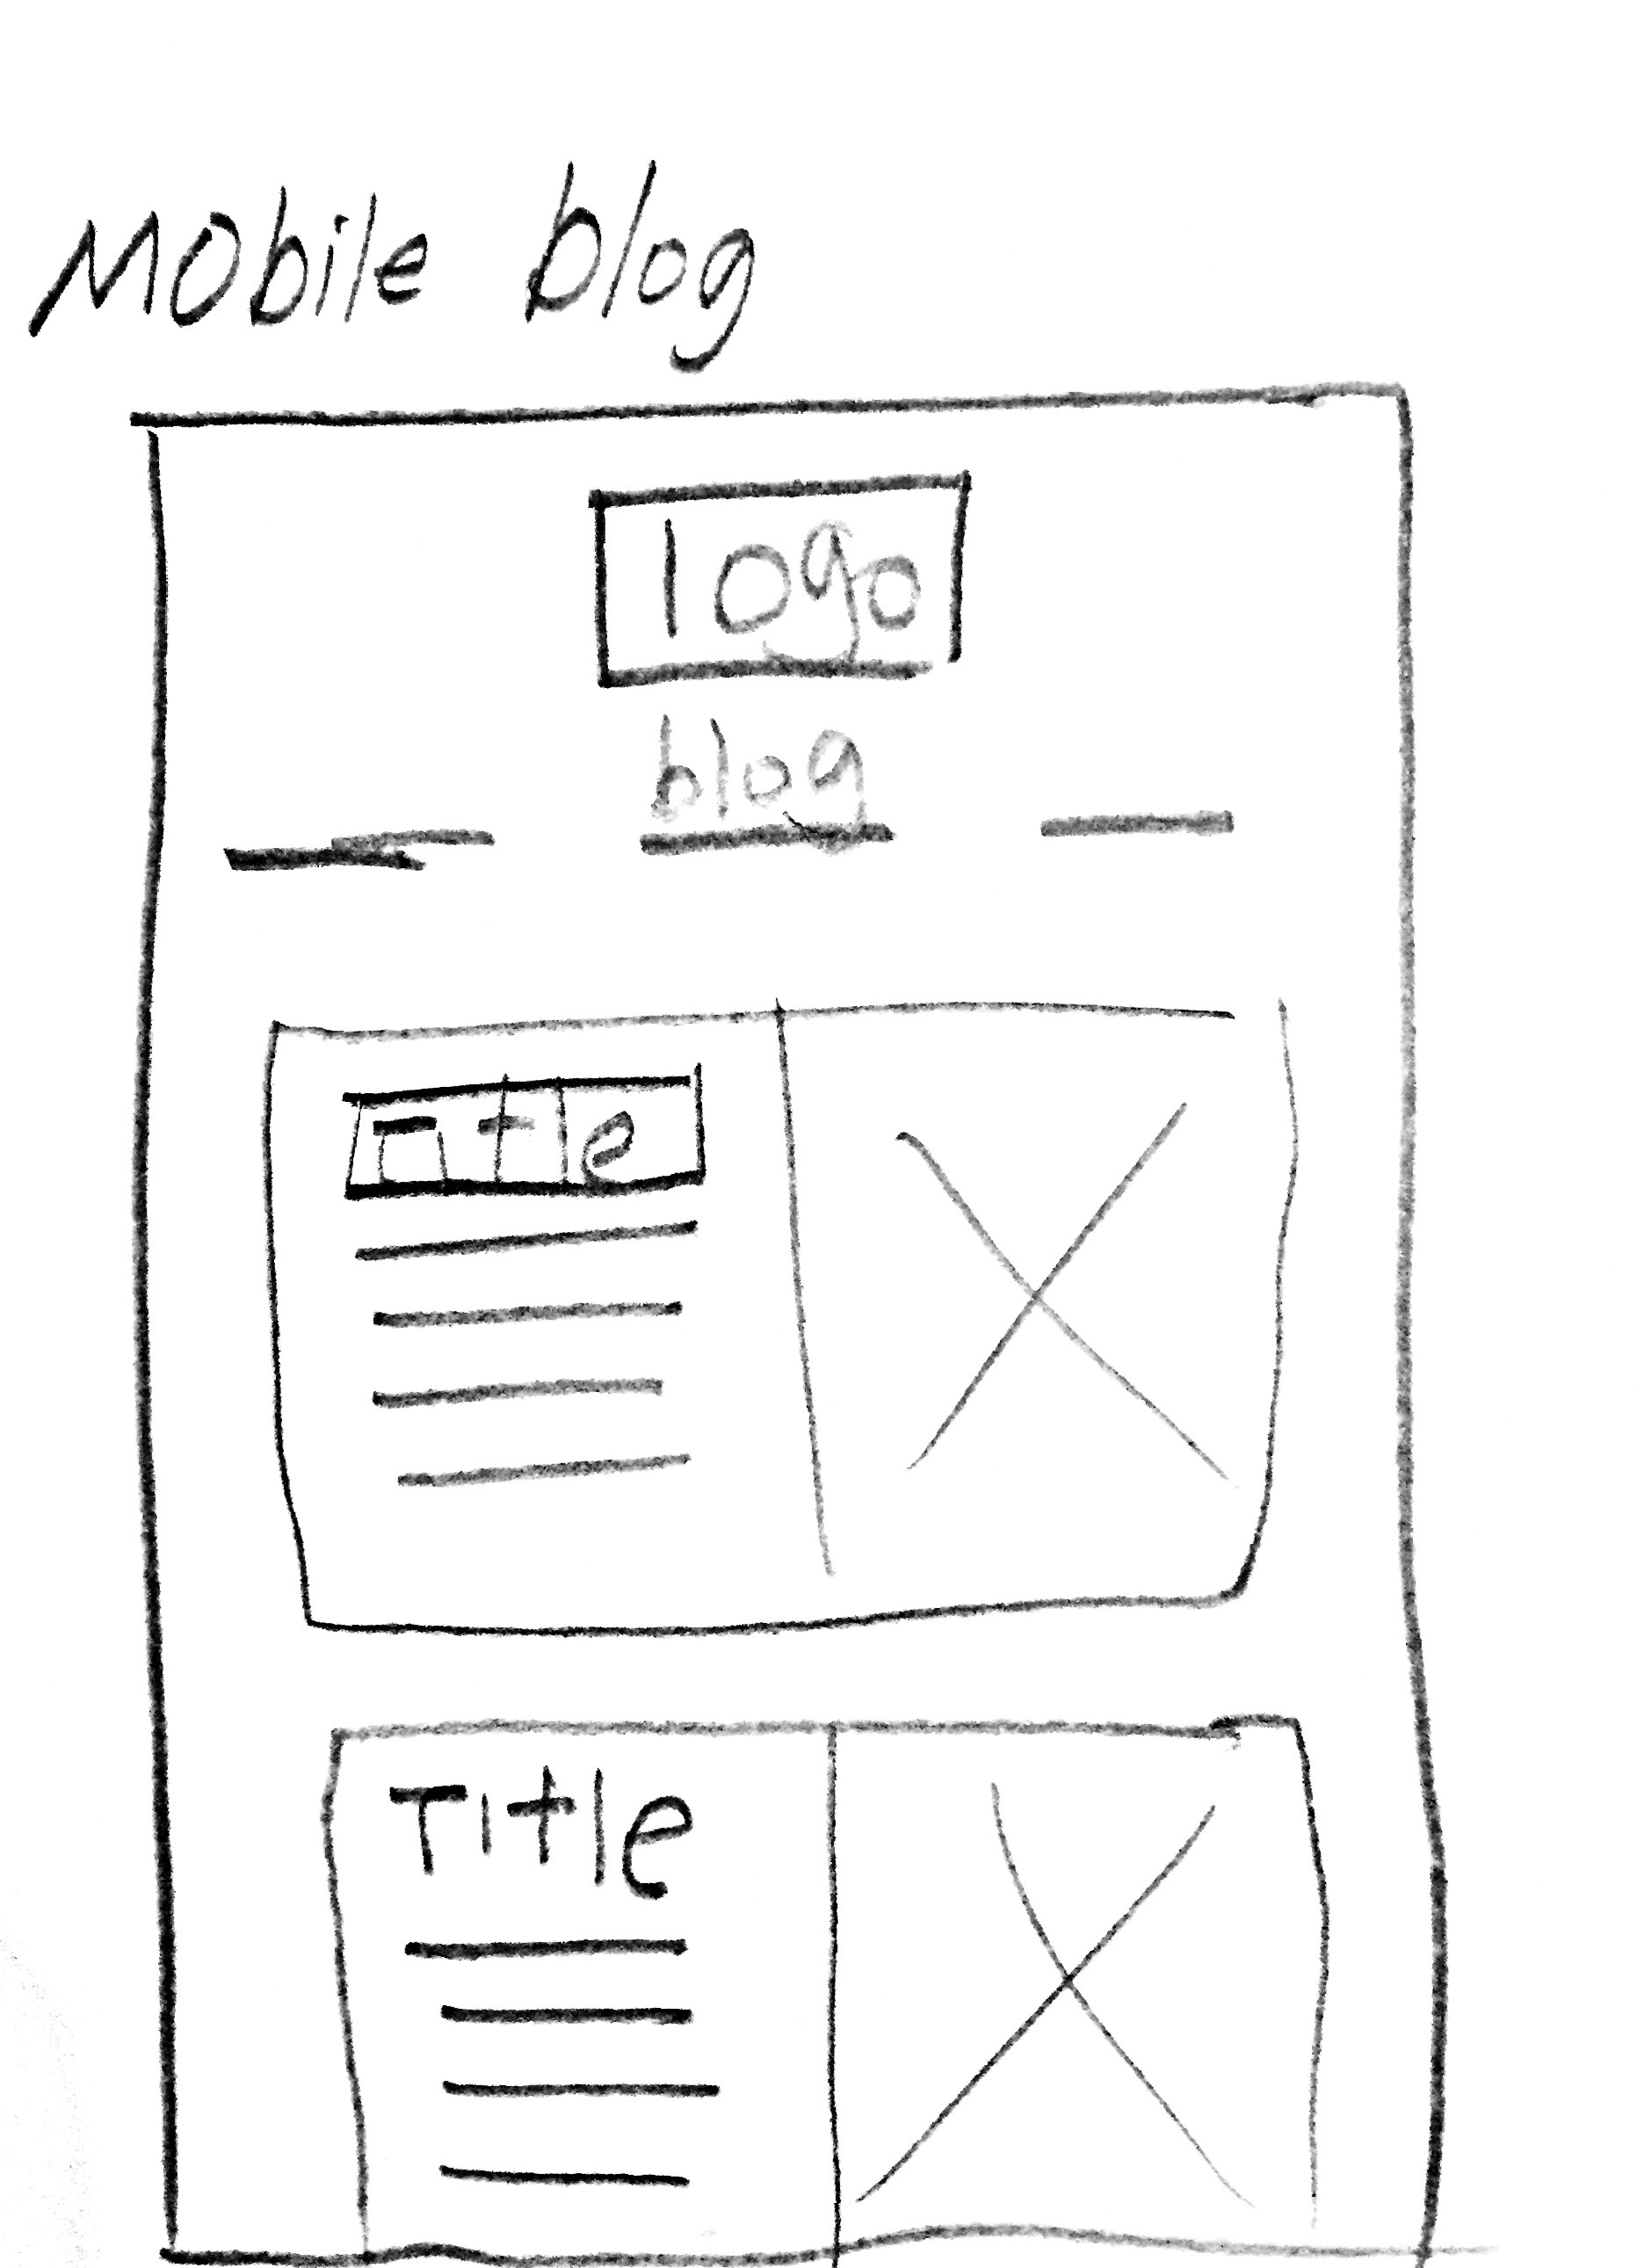 Mobile blog
logo
blog
Title
Title